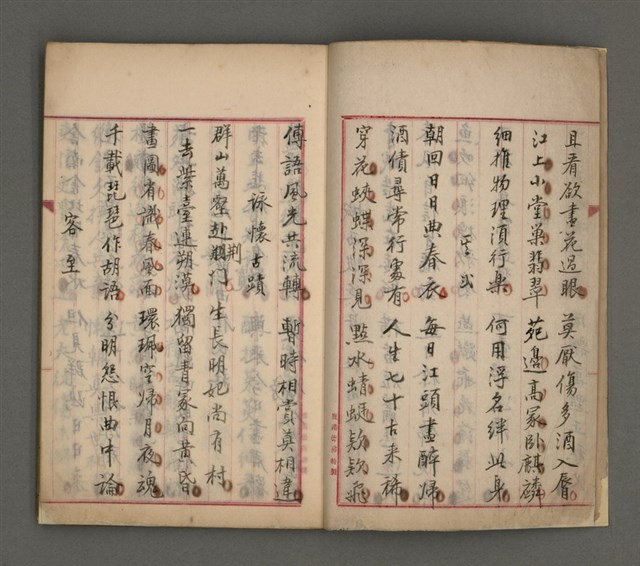 且看欲盡花過眼　莫厭傷多酒入唇
江上小堂巢翡翠　苑邊高冢臥麒麟
細推物理須行樂　何用浮名絆此身
其弍
朝回日日典春衣　每日江頭盡醉歸
酒債尋常行處有　人生七十古來稀
穿花蛺蝶深深見　點水蜻蜓欵欵飛
傳語風光共流轉　暫時相賞莫相違
詠懷古蹟
群山萬壑赴荆門　生長明妃尚有村
荆
一去紫臺連朔漠　獨留青冢向黃昏
畫圖省識春風面　環珮空歸月夜魂
千載琵琶作胡語　分明怨恨曲中論
客至